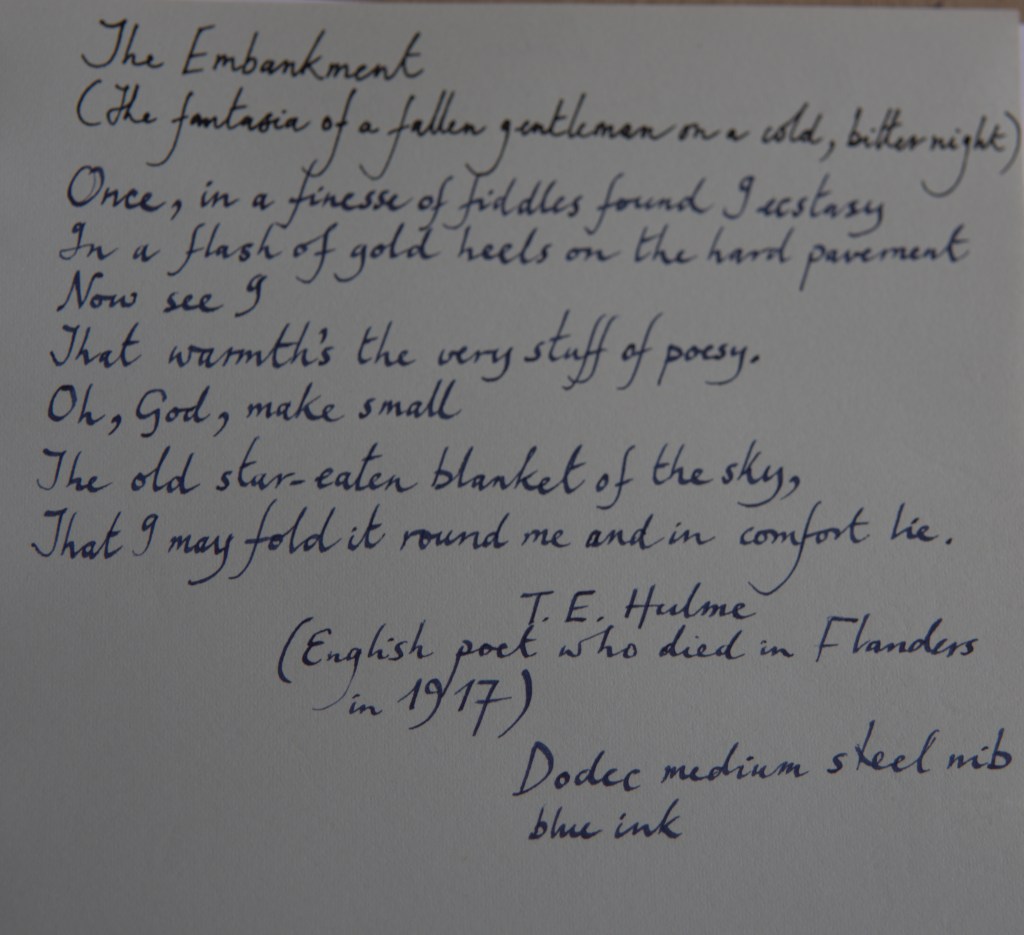 The Embankment
(The fantasia of a fallen gentleman on a cold, bitter night)
Once, in a finesse of fiddles found I ecstasy
In a flash of gold heels on the hard pavement
Now see I
That warmth's the very stuff of poesy.
Oh, God, make small
The old star-eaten blanket of the sky,
That I may fold it round me and in comfort lie.
T. E. Hulme
(English poet who died in Flanders
in 1917)
Dodec medium steel nib
blue ink